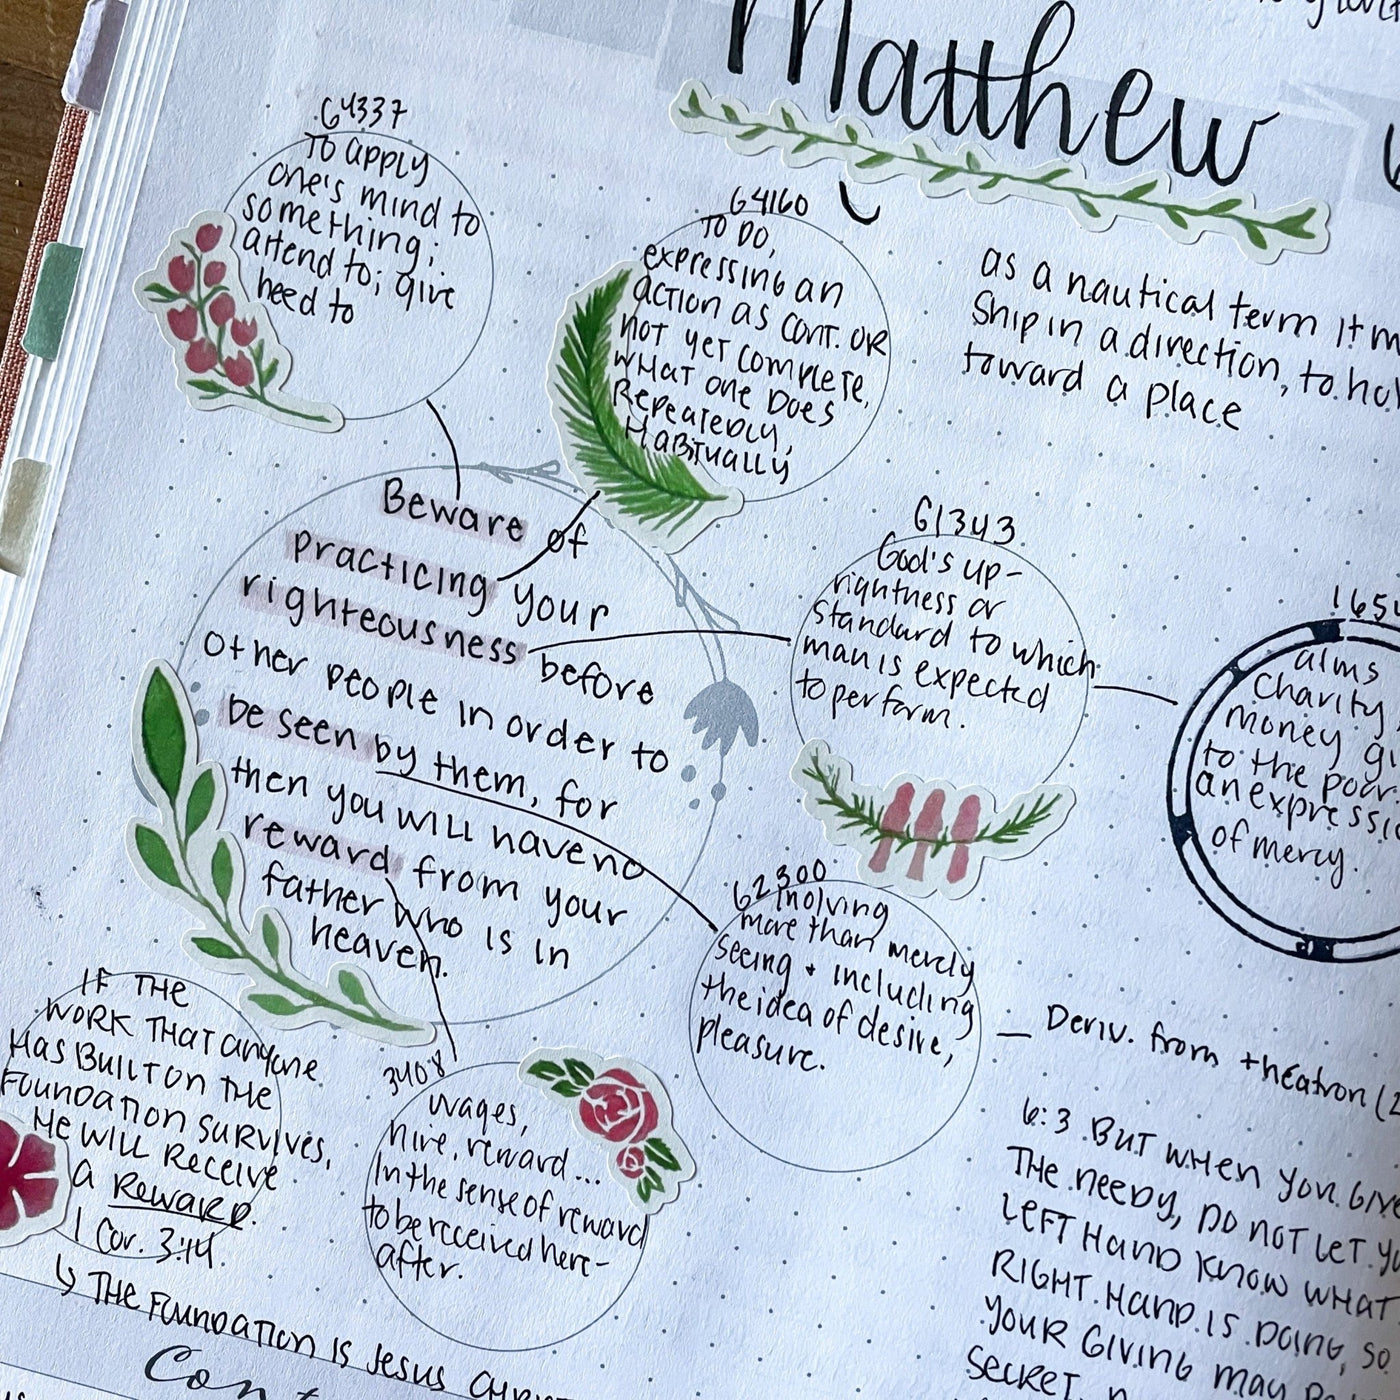 Matthew
64337
To apply
one's mind to
something;
attend to; give
heed to
64160
TO DO,
expressing an
action as cont. OR
not yet complete,
what one Does
Repeatedly,
Habitually
as a nautical term it
Ship in a direction, to
toward a place
Beware of
practicing your
righteousness before
other people in order to
be seen by them, for
then you will have no
reward from your
father who is in
heaven.
61343
God's up-
rightness or
standard to which
man is expected
to perform.
alms
Charity
money
to the poor.
an
of mercy.
62300
Inolving
more than merely
seeing + including
the idea of desire,
pleasure.
Deriv. from theatron
IF THE
WORK THAT anyone
Has BUILT ON THE
Foundation survives,
He will Receive
a Reward.
1 Cor. 3:14.
↳ THE Foundation is Jesus
3408
wages,
hire, reward...
In the sense of reward
to be received here-
after.
6:3 But when you
THE needy, do not let
Left Hand know what
Right Hand is doing, so
your giving may
secret.